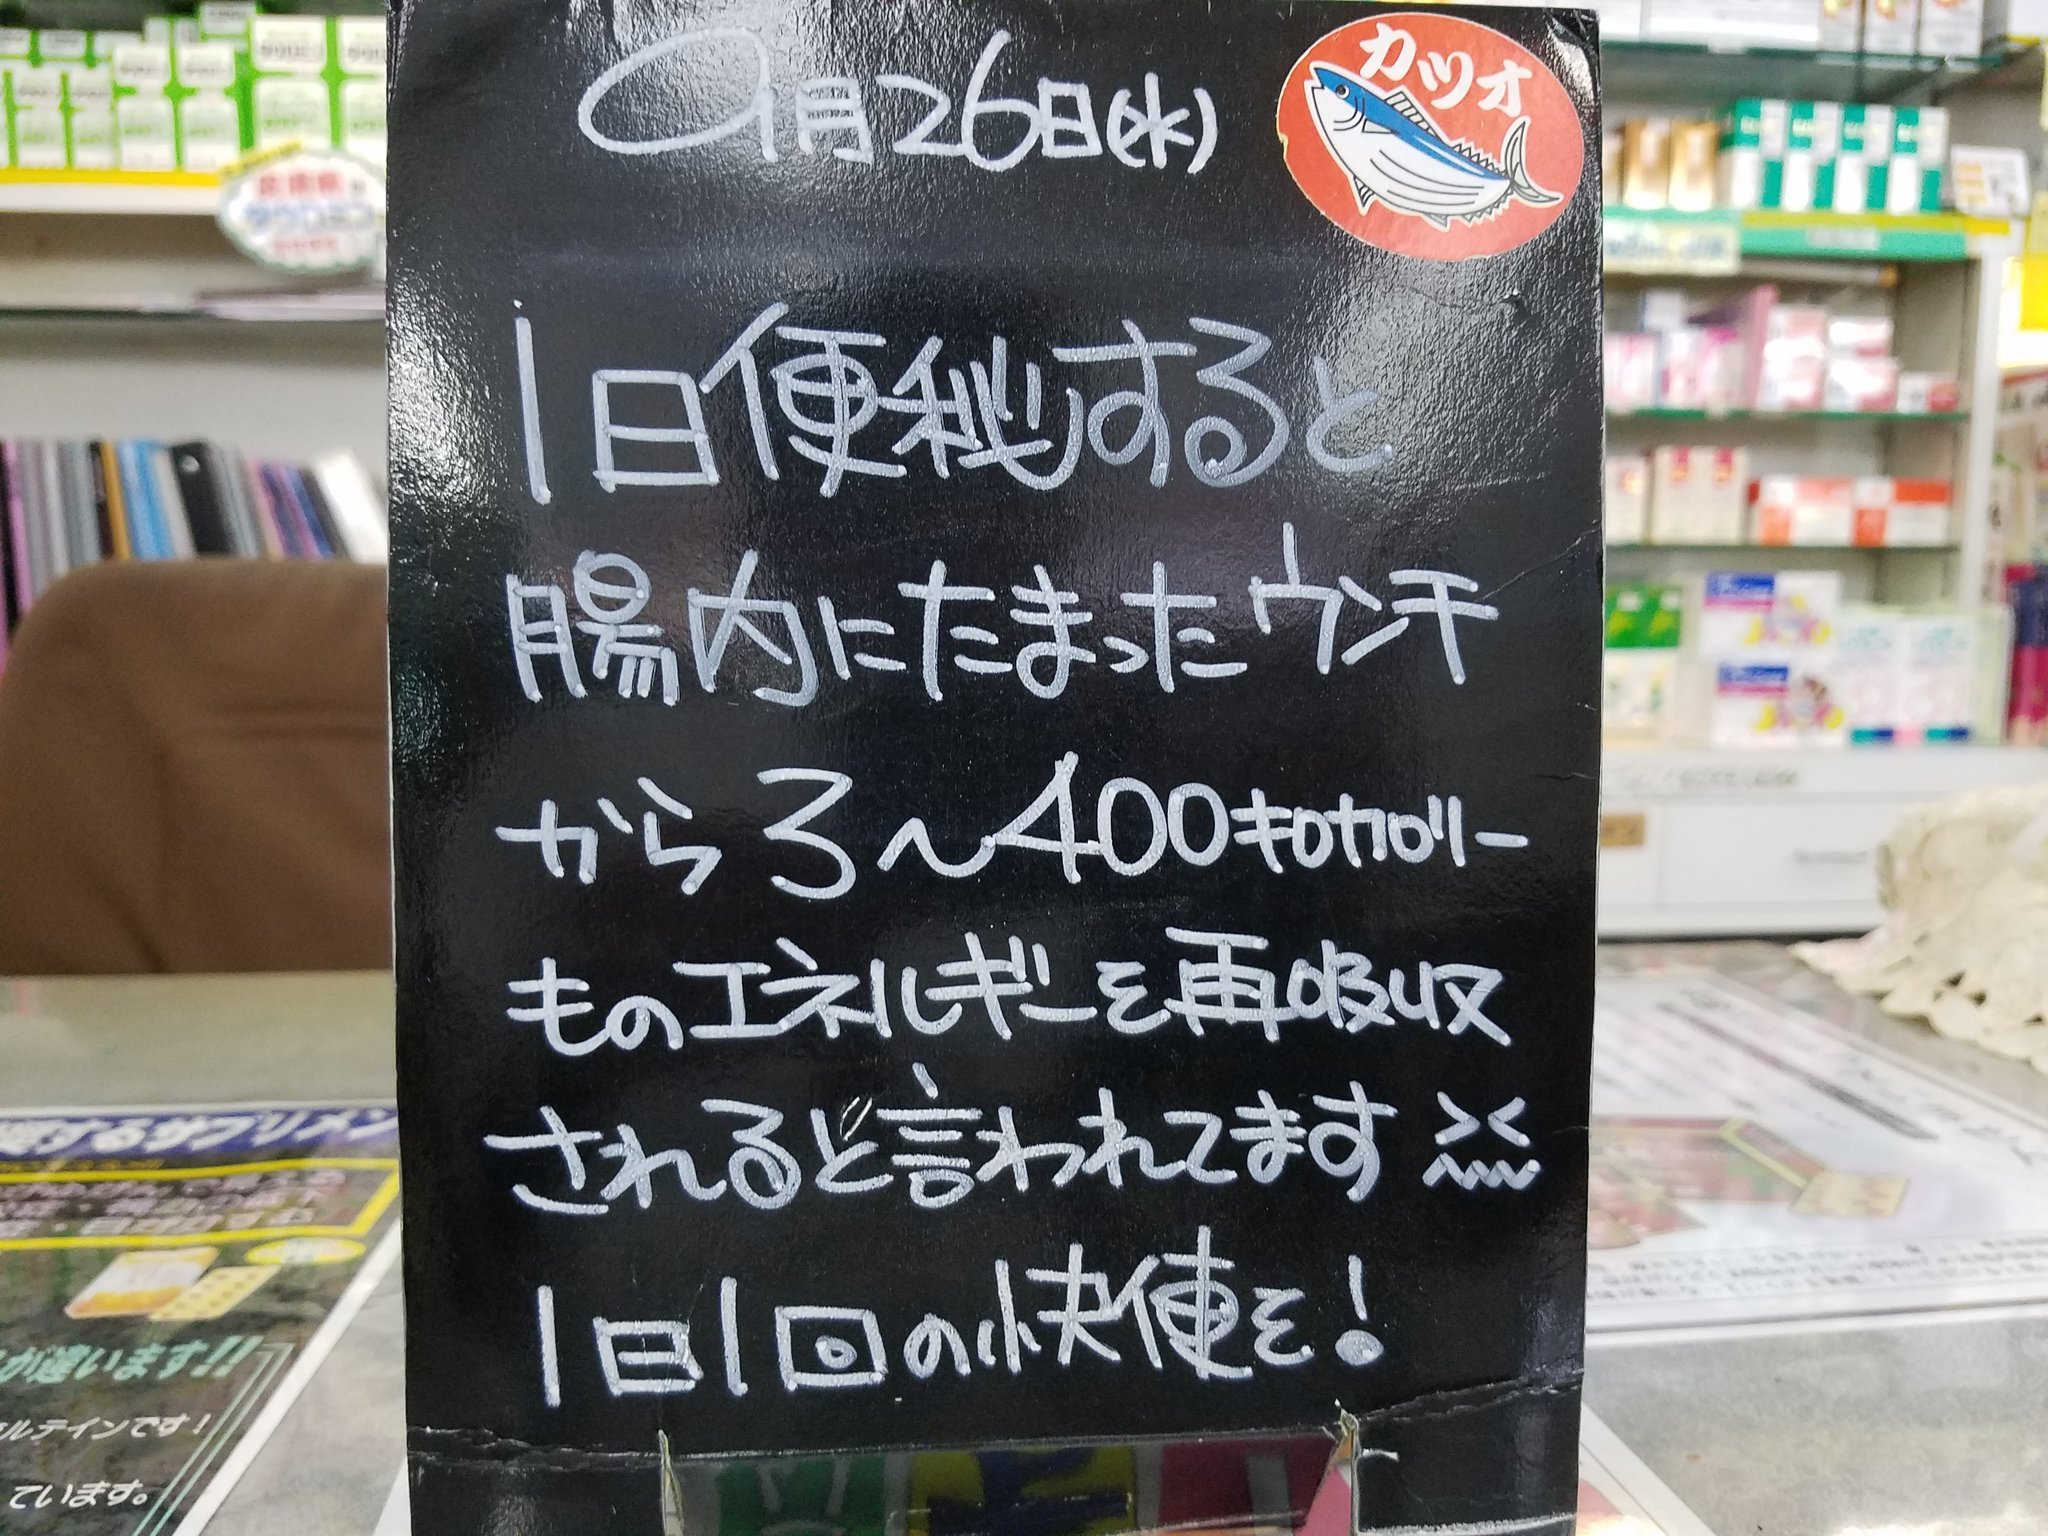 9月26日(水)
カツオ
1日便秘すると
腸内にたまったウンチ
から3〜400キロカロリー
ものエネルギーを再吸収
されると言われてます
1日1回の快便を!
するサプリメン
が違います!!
ルテインです!
ています。